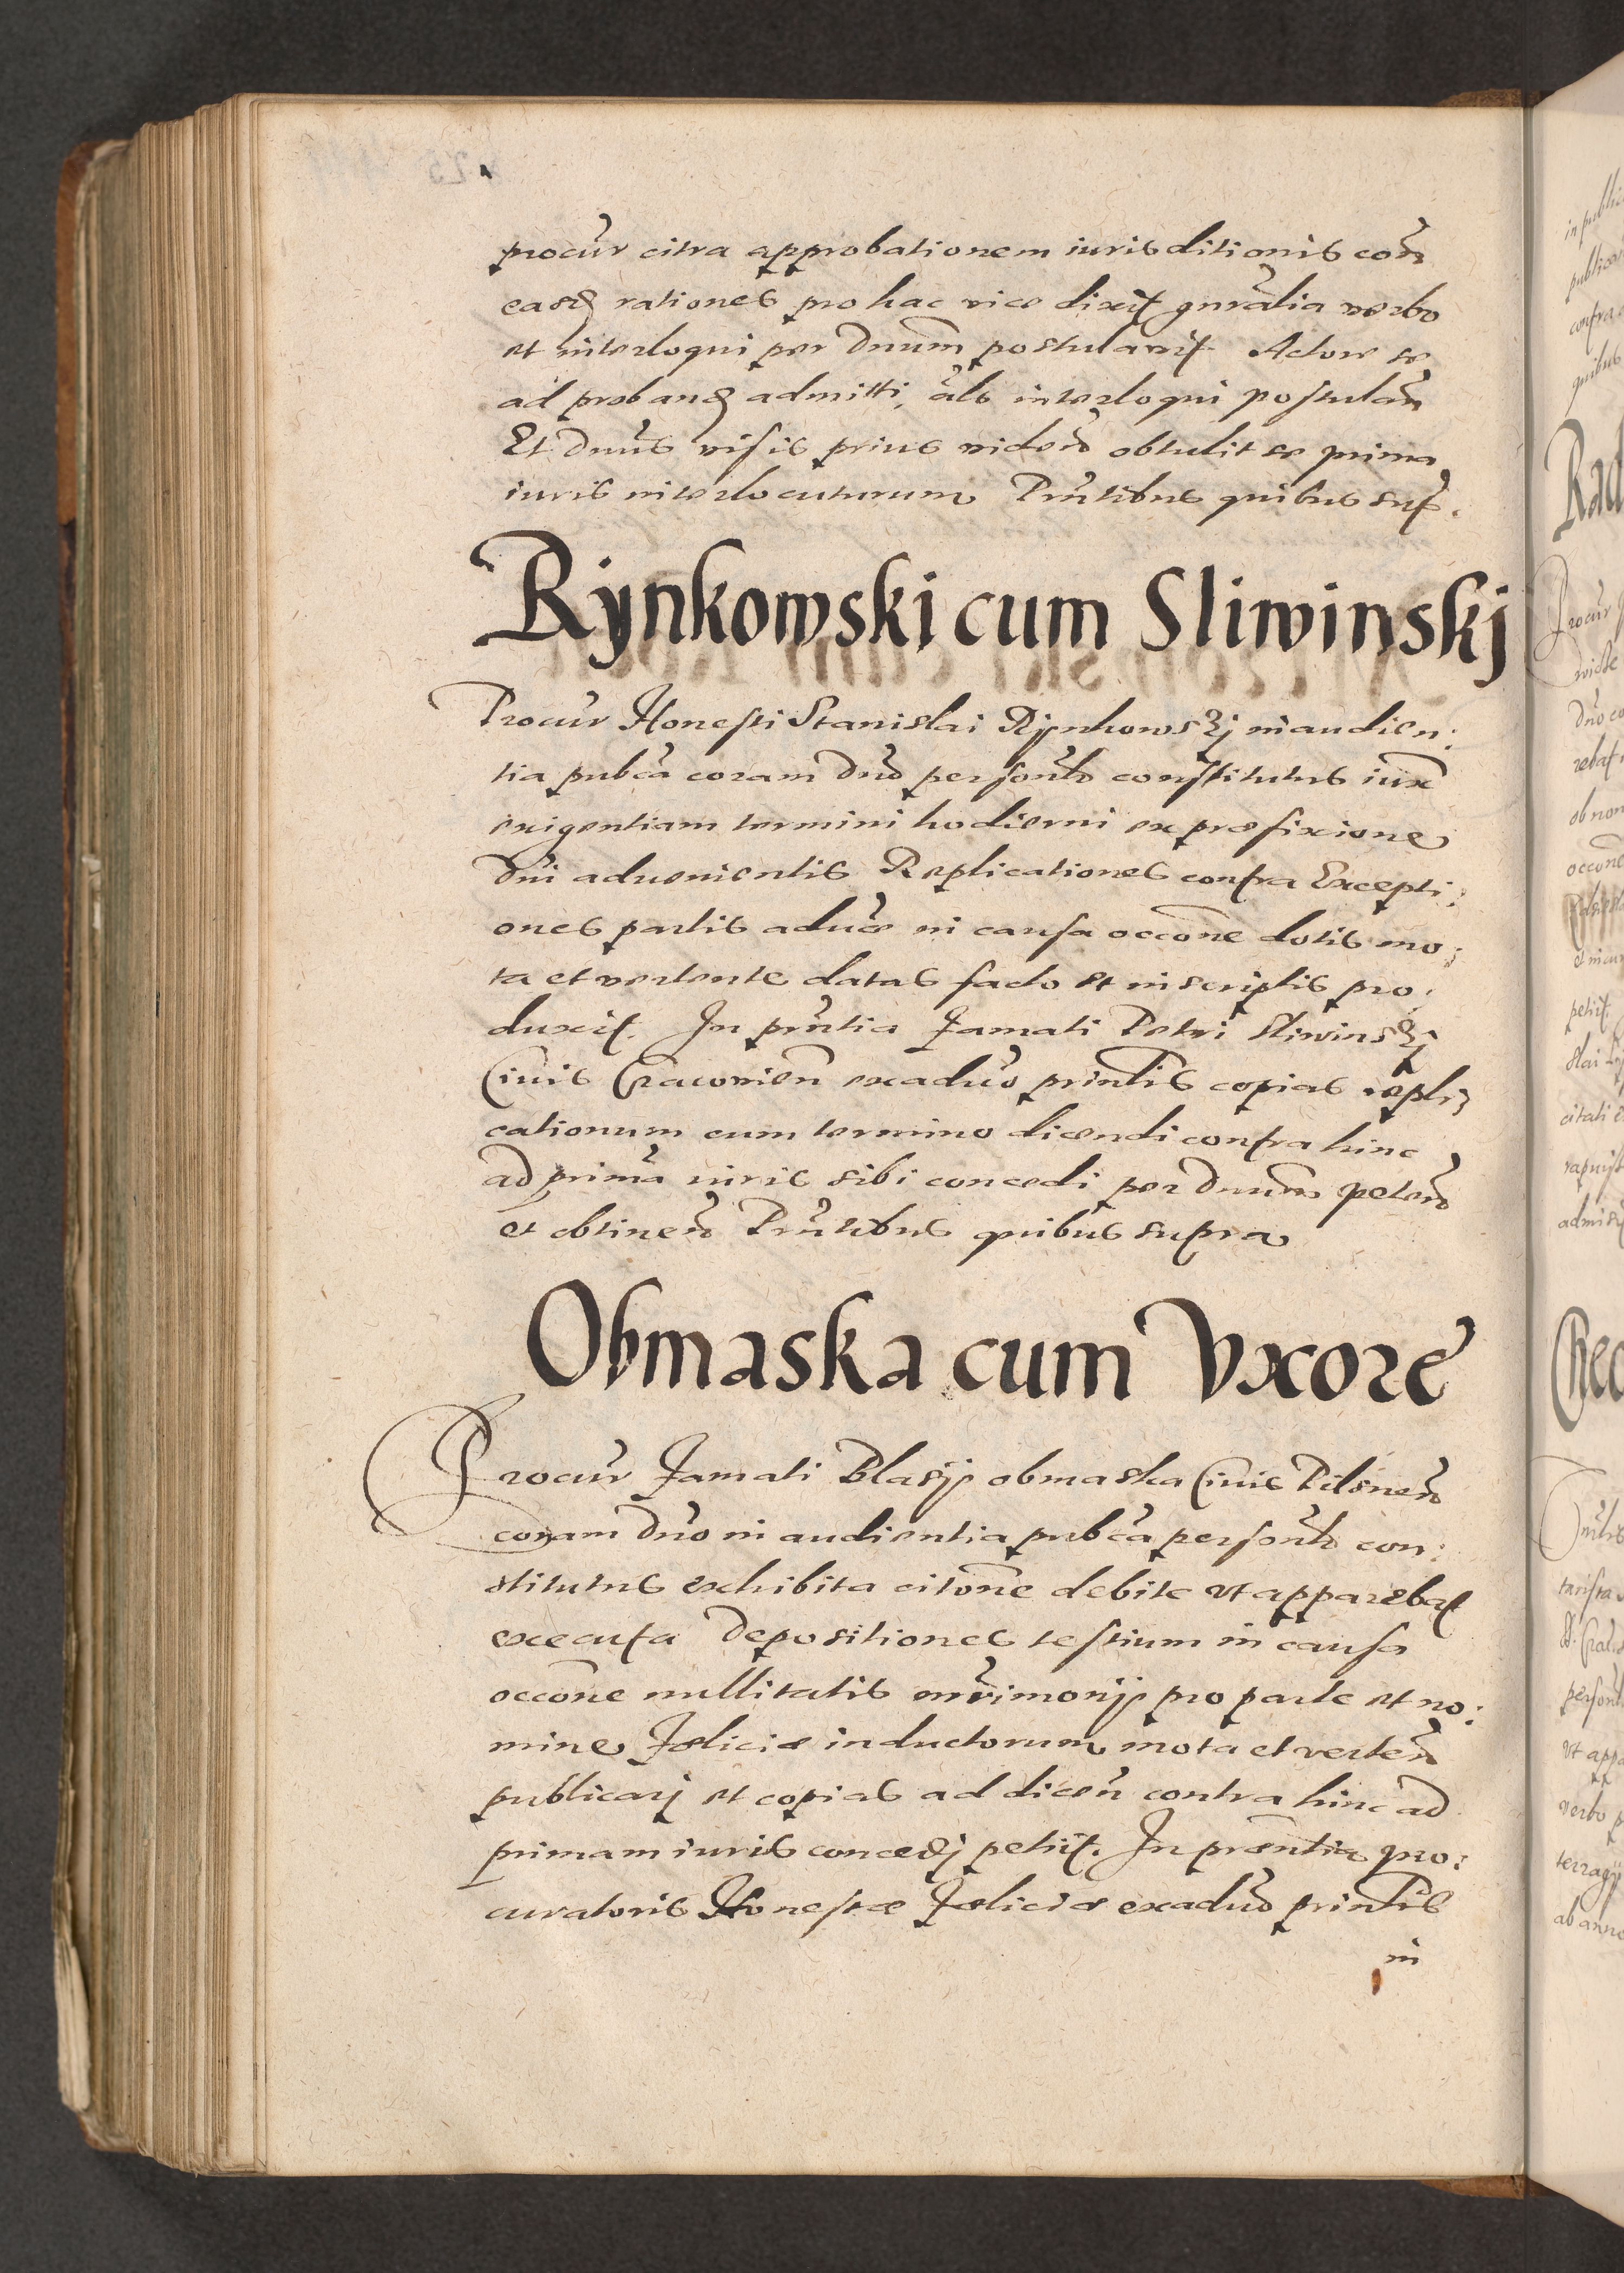 procur citra approbationem iurisditionis con
easdem rationes pro hac vice dixit gnralia verbo
et interloqui per Dnum postulavit Actore se
ad proband admitti, als interloqui postulan
Et Dnus visis prius viden obtulit se prima
iuris interlocuturum Prntibus quibus sup.
Rÿnkowski cum Sliwinskj
Procur Honesti Stanislai Rÿnkowskj in audien:
tia pubca coram Dno personlr constitutus iux
exigentiam termini hodierni ex præfixione
Dni aduenientis Replicationes contra Excepti:
ones partis aduer in causa occone dotis mo:
ta et vertente datas facto et in scriptis pro:
duxit. In prntia Famati Petri Sliwinskj
Ciuis Cracovien ex aduo printis copias repli:
cationum cum termino dicendi contra hinc
ad prima iuris sibi concedi per Dnum peten
et obtinen Prntibus quibus supra
Obmaska cum Vxore
Procur Famati Blasÿ obmaska Ciuis Pilsnen
coram Dno in audientia pubca personlr con:
stitutus exhibita citone debite vt apparebat
executa Depositiones testium in causa
occone nullitatis mrimonÿ pro parte et no:
mine Fæliciæ inductorum mota et verten
publicarj et copias ad dicen contra hinc ad
primam iuris concedj petiit. In præntia pro:
curatoris Honestæ Fæliciæ ex aduo printis
in